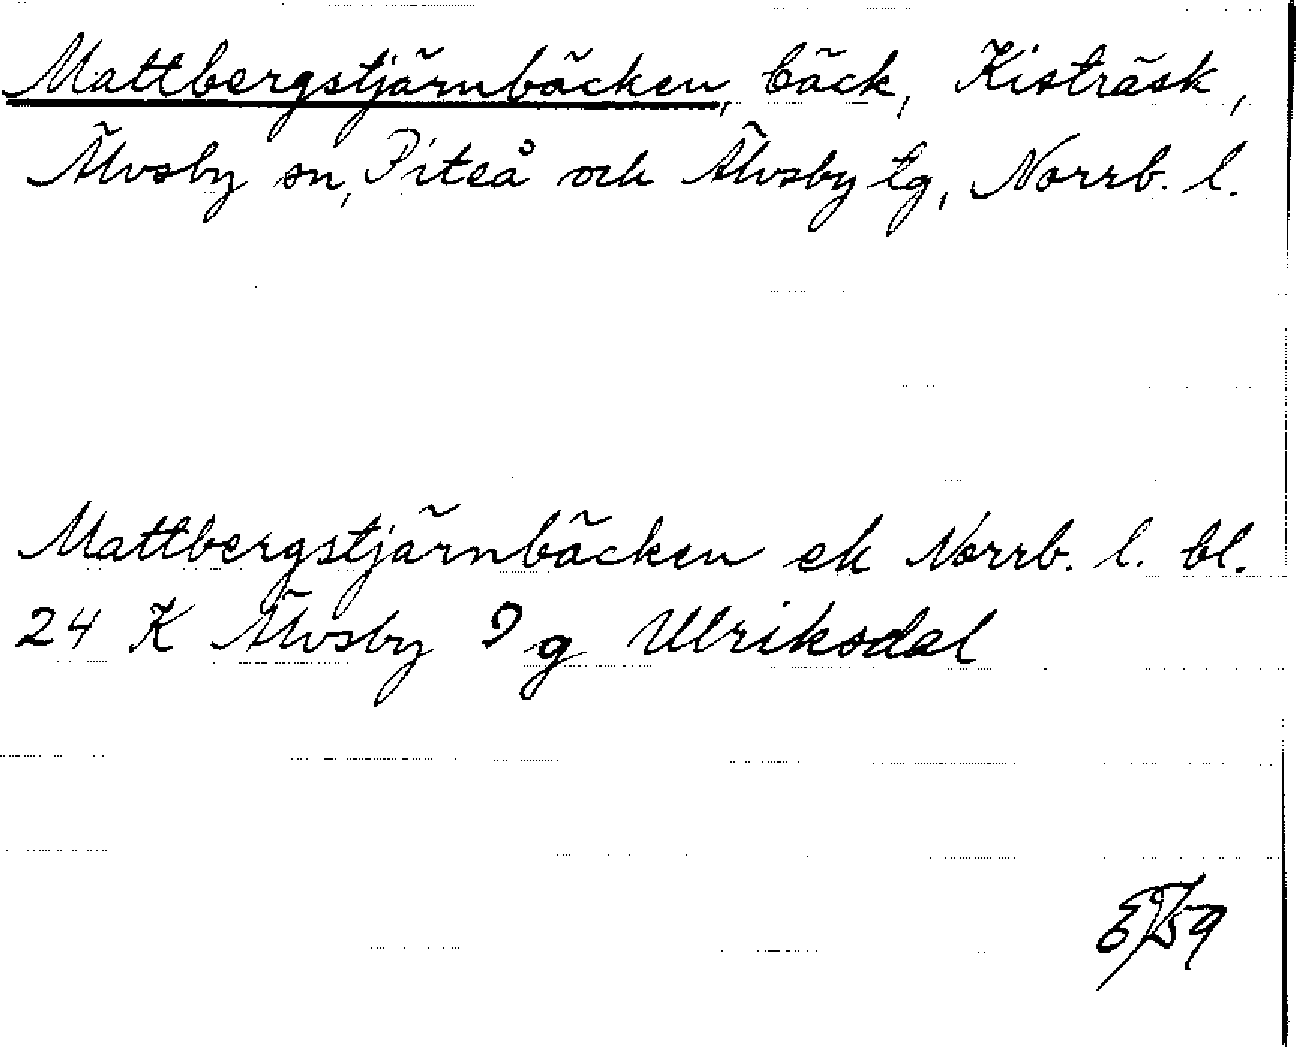 Mattbergstjärnbäcken, bäck, Kisträsk,
Älvsby sn, Piteå och Älvsby tg, Norrb. l.
Mattbergstjärnbäcken ek Norrb. l. bl.
24 K Älvsby 9 g Ulriksdal